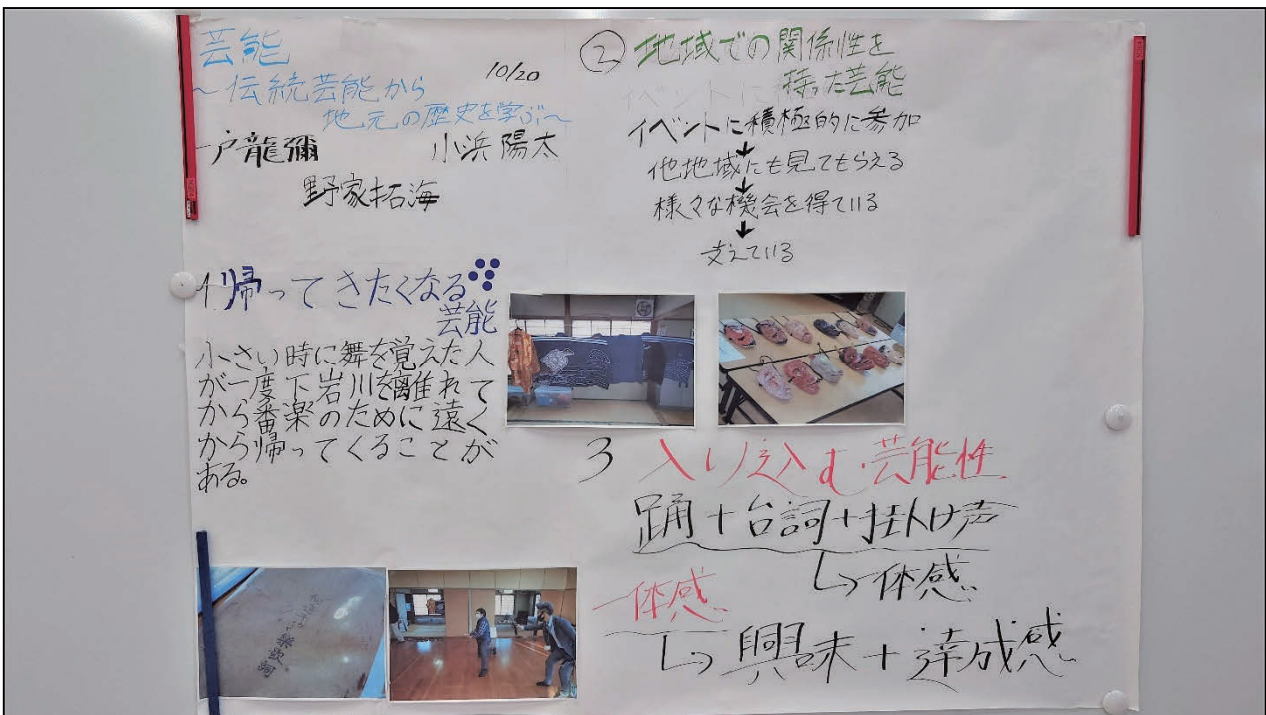 芸能
10/20
～伝統芸能から
地元の歴史を学ぶ～
一戸龍彌
小浜陽太
野家拓海
1 帰ってきたくなる
芸能
小さい時に舞を覚えた人
が一度下岩川を離れて
から番楽のために遠く
から帰ってくることが
ある。
② 地域での関係性を
持った芸能
イベントに
イベントに積極的に参加
↓
他地域にも見てもらえる
↓
様々な機会を得ている
↓
支えている
3 入り込む芸能性
踊+台詞+掛け声
↳体感
一体感
↳興味+達成感